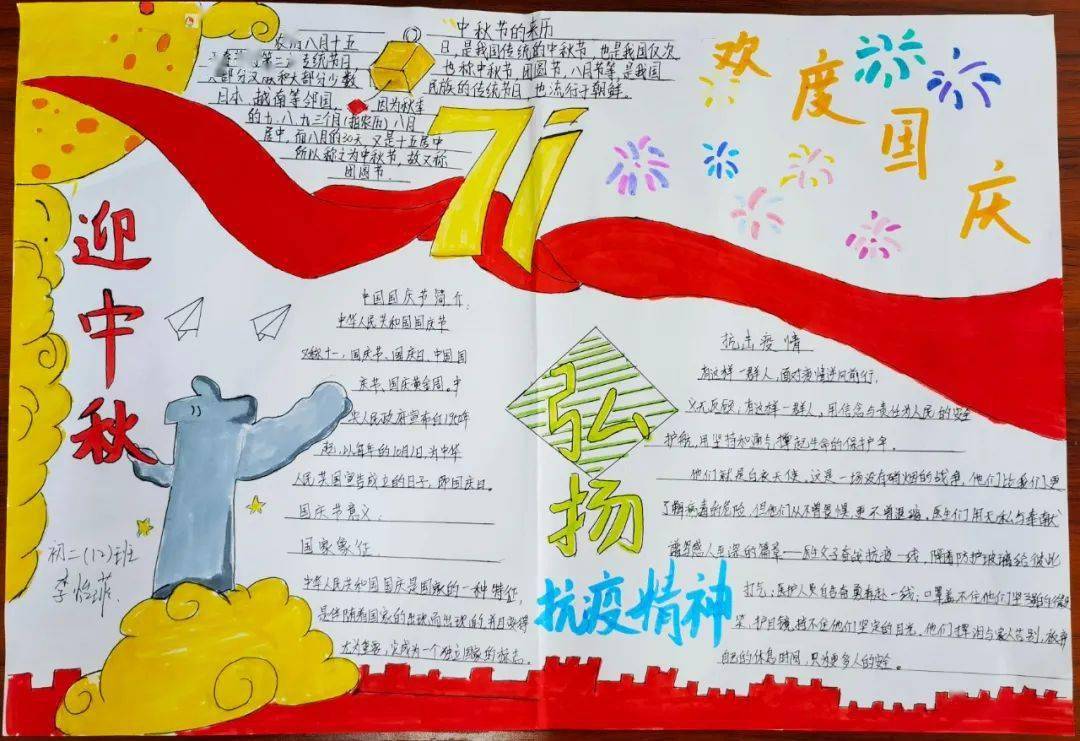 中秋节的来历
八月十五
日,是我国传统的中秋节,也是我国仅次
传统节日
也称中秋节,团圆节,八月节等,是我国
和大部分少数
民族的传统节日,也流行于朝鲜。
日本、越南等邻国。因为秋季
的七、八、九三个月(指农历),八月
居中,而八月的30天,又是十五居中
所以称之为中秋节,故又称
团圆节.
71
欢度国庆
迎中秋
中国国庆节简介:
中华人民共和国国庆节
又称十一、国庆节、国庆日、中国国
庆节、国庆黄金周。中
人民政府宣布自1950年
起,以每年的10月1日,为中华
人民共国宣告成立的日子,即国庆日。
国庆节意义:
国家象征
中华人民共和国国庆是国家的一种特征,
是伴随着国家的出现而出现的,并且变得
尤为重要,它成为一个独立国家的标志。
初二(12)班
李怡
弘扬
抗疫精神
抗击疫情
有这样一群人,面对疫情逆风前行,
义无反顾,有这样一群人,用信念与责任为人民的安全
护航,用坚持和勇气撑起生命的保护伞。
他们就是白衣天使,这是一场没有硝烟的战争,他们比我们更
了解病毒的危险,但他们从不曾畏惧,更不曾退缩,医生们用无私与奉献
谱写感人至深的篇章——医生父子奋战抗疫一线,隔着防护玻璃给彼此
打气,医护人员自告奋勇奔赴一线;口罩盖不住他们坚毅的
护目镜挡不住他们坚定的目光,他们挥泪与家人告别,放弃
自己的休息时间,只为更多人的安全。